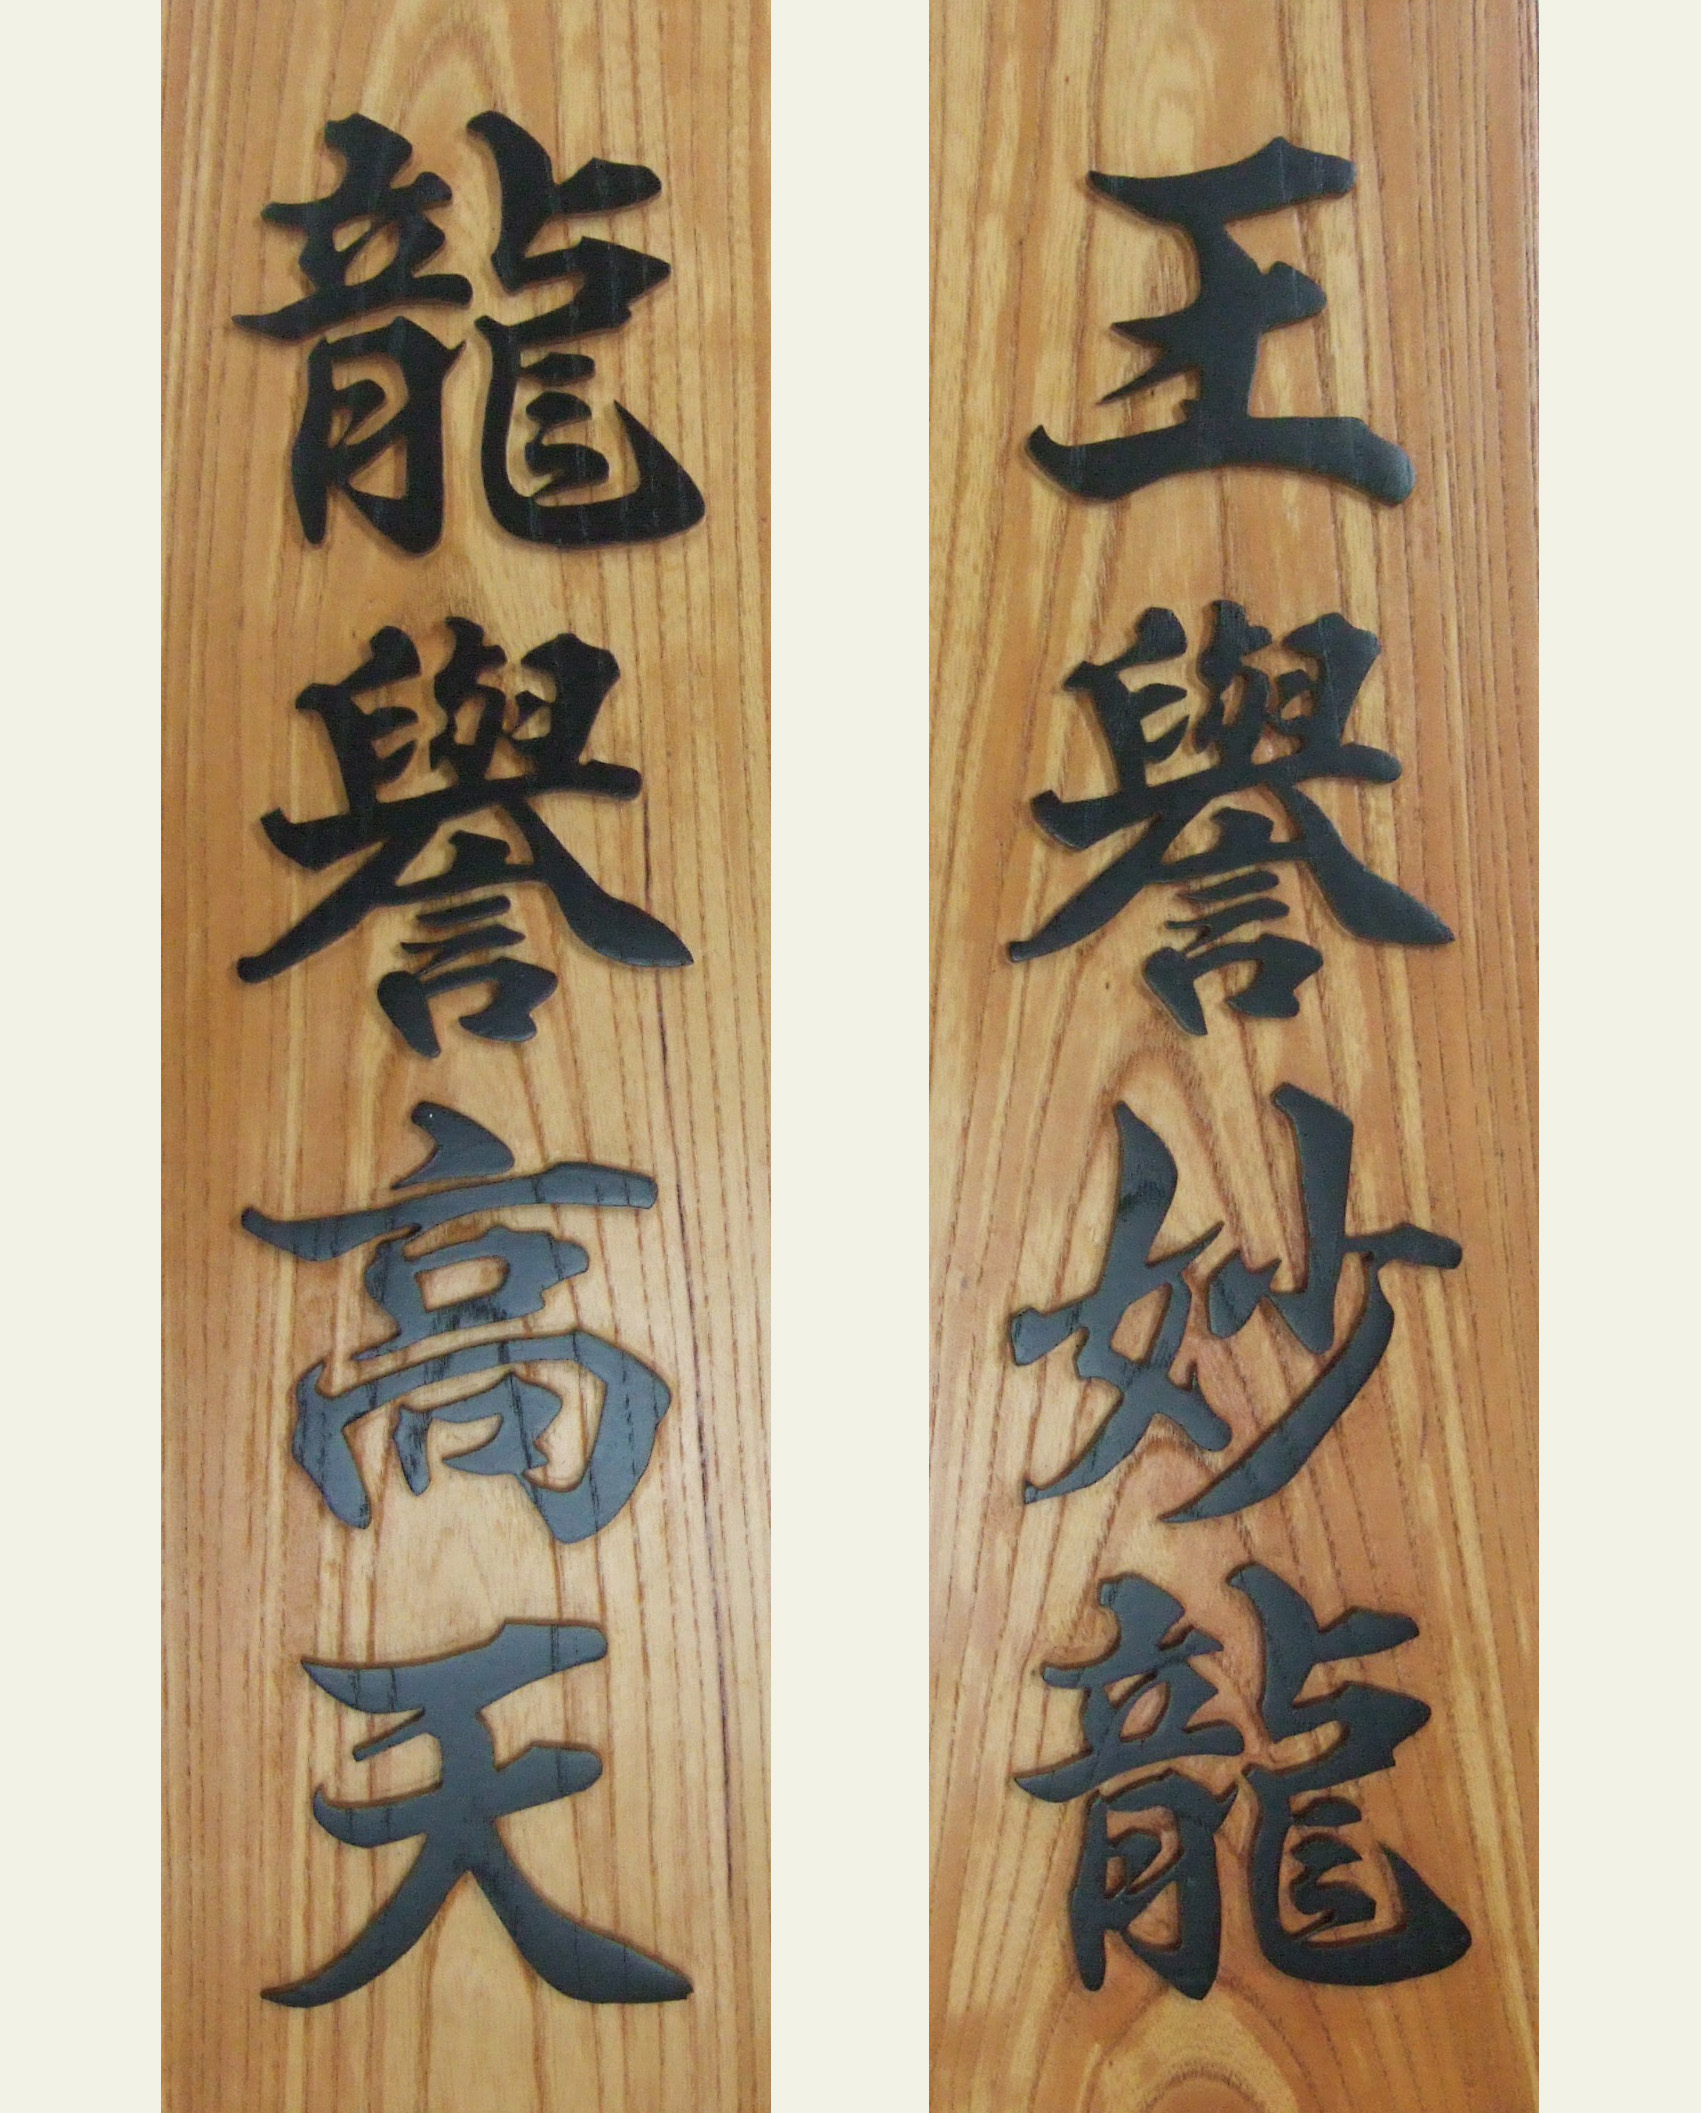 王譽妙龍
龍譽高天